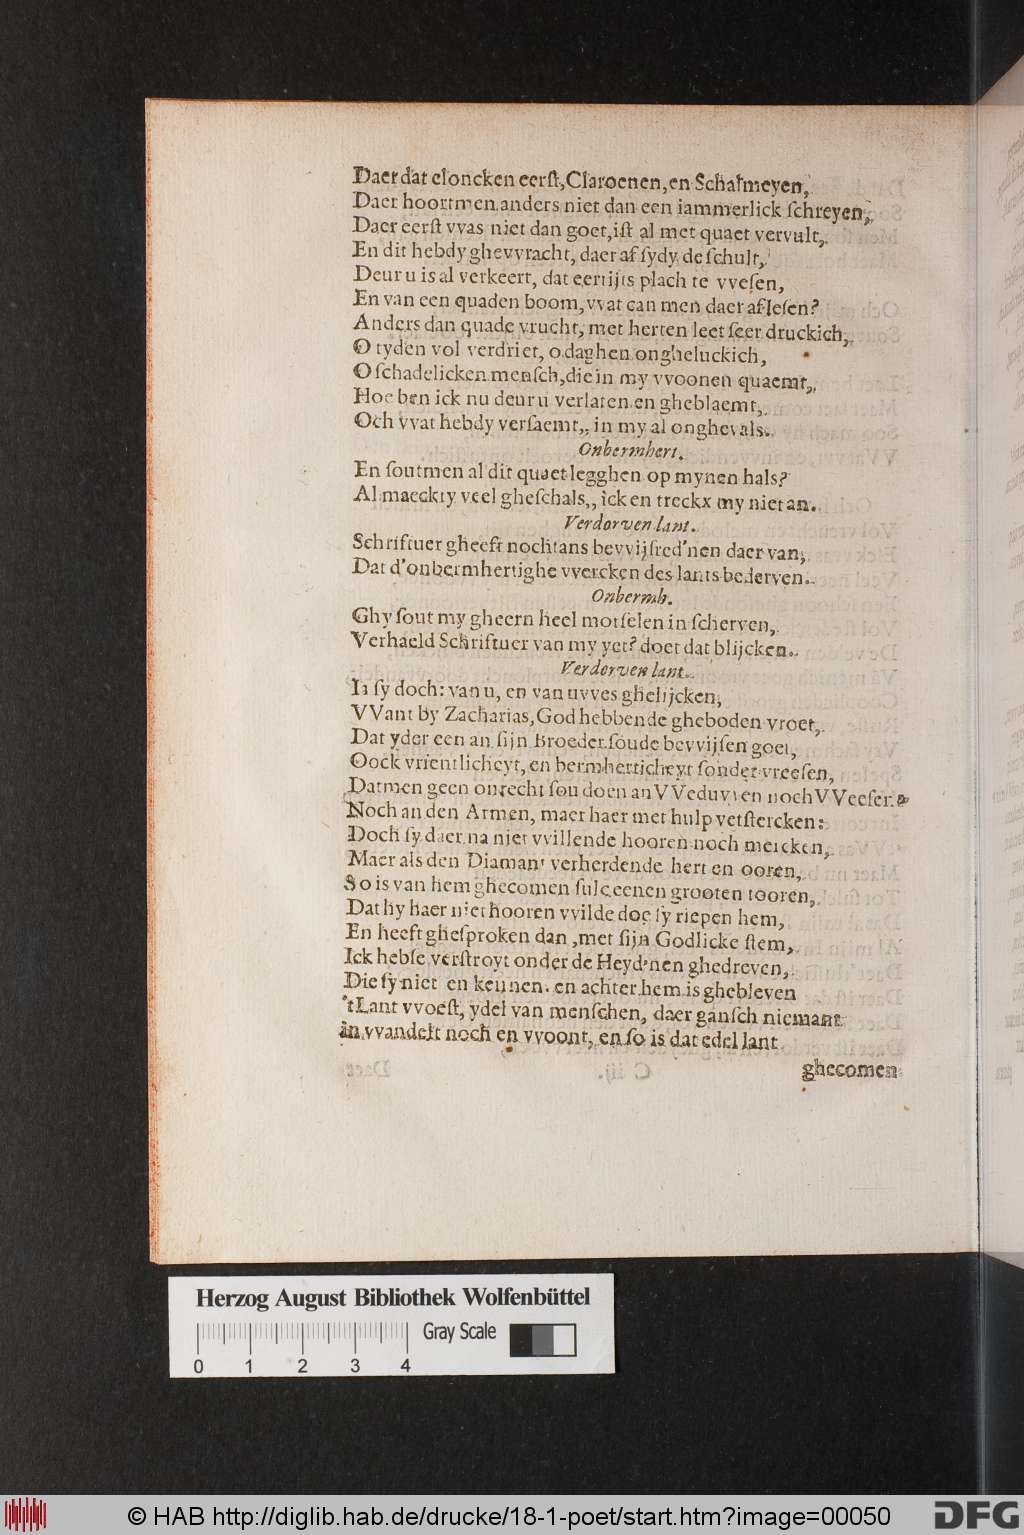 Daer dat cloncken eerſt, Claroenen, en Schalmeyen,
Daer hoortmen anders niet dan een iammerlick ſchreyen,,
Daer eerſt vvas niet dan goet, iſt al met quaet vervult,,
En dit hebdy ghevvracht, daer af ſydy de ſchult,,
Deur u is al verkeert, dat eertijts plach te vveſen,
En van een quaden boom, vvat can men daer af leſen?
Anders dan quade vrucht, met herten leet ſeer druckich,,
O tyden vol verdriet, o daghen ongheluckich,
O ſchadelicken menſch, die in my vvoonen quaemt,,
Hoe ben ick nu deur u verlaten en gheblaemt,,
Och vvat hebdy verſaemt,, in my al onghevals.
Onbermhert.
En ſoutmen al dit quaet legghen op mynen hals?
Al maeckty veel gheſchals,, ick en treckx my niet an.
Verdorven lant.
Schriftuer gheeft nochtans bevvijſred'nen daer van,
Dat d'onbermhertighe vvercken des lants bederven.
Onbermh.
Ghy ſout my gheern heel morſelen in ſcherven,
Verhaeld Schriftuer van my yet? doet dat blijcken.
Verdorven lant.
Ia ſy doch: van u, en van uvves ghelijcken,
VVant by Zacharias, God hebbende gheboden vroet,
Dat yder een an ſijn Broeder ſoude bevvijſen goet,
Oock vrientlicheyt, en bermherticheyt ſonder vreeſen,
Datmen geen onrecht ſou doen an VVeduvven noch VVeeſen
Noch an den Armen, maer haer met hulp verſtercken:
Doch ſy daer na niet vvillende hooren noch mercken,
Maer als den Diamant verherdende hert en ooren,
So is van hem ghecomen ſulc eenen grooten tooren,
Dat hy haer niet hooren vvilde doe ſy riepen hem,
En heeft gheſproken dan, met ſijn Godlicke ſtem,
Ick hebſe verſtroyt onder de Heyd'nen ghedreven,
Die ſy niet en kennen. en achter hem is ghebleven
't Lant vvoeſt, ydel van menſchen, daer gansch niemant
in vvandelt noch en vvoont, en ſo is dat edel lant
ghecomen
Herzog August Bibliothek Wolfenbüttel
Gray Scale
0 1 2 3 4
© HAB http://diglib.hab.de/drucke/18-1-poet/start.htm?image=00050
DFG